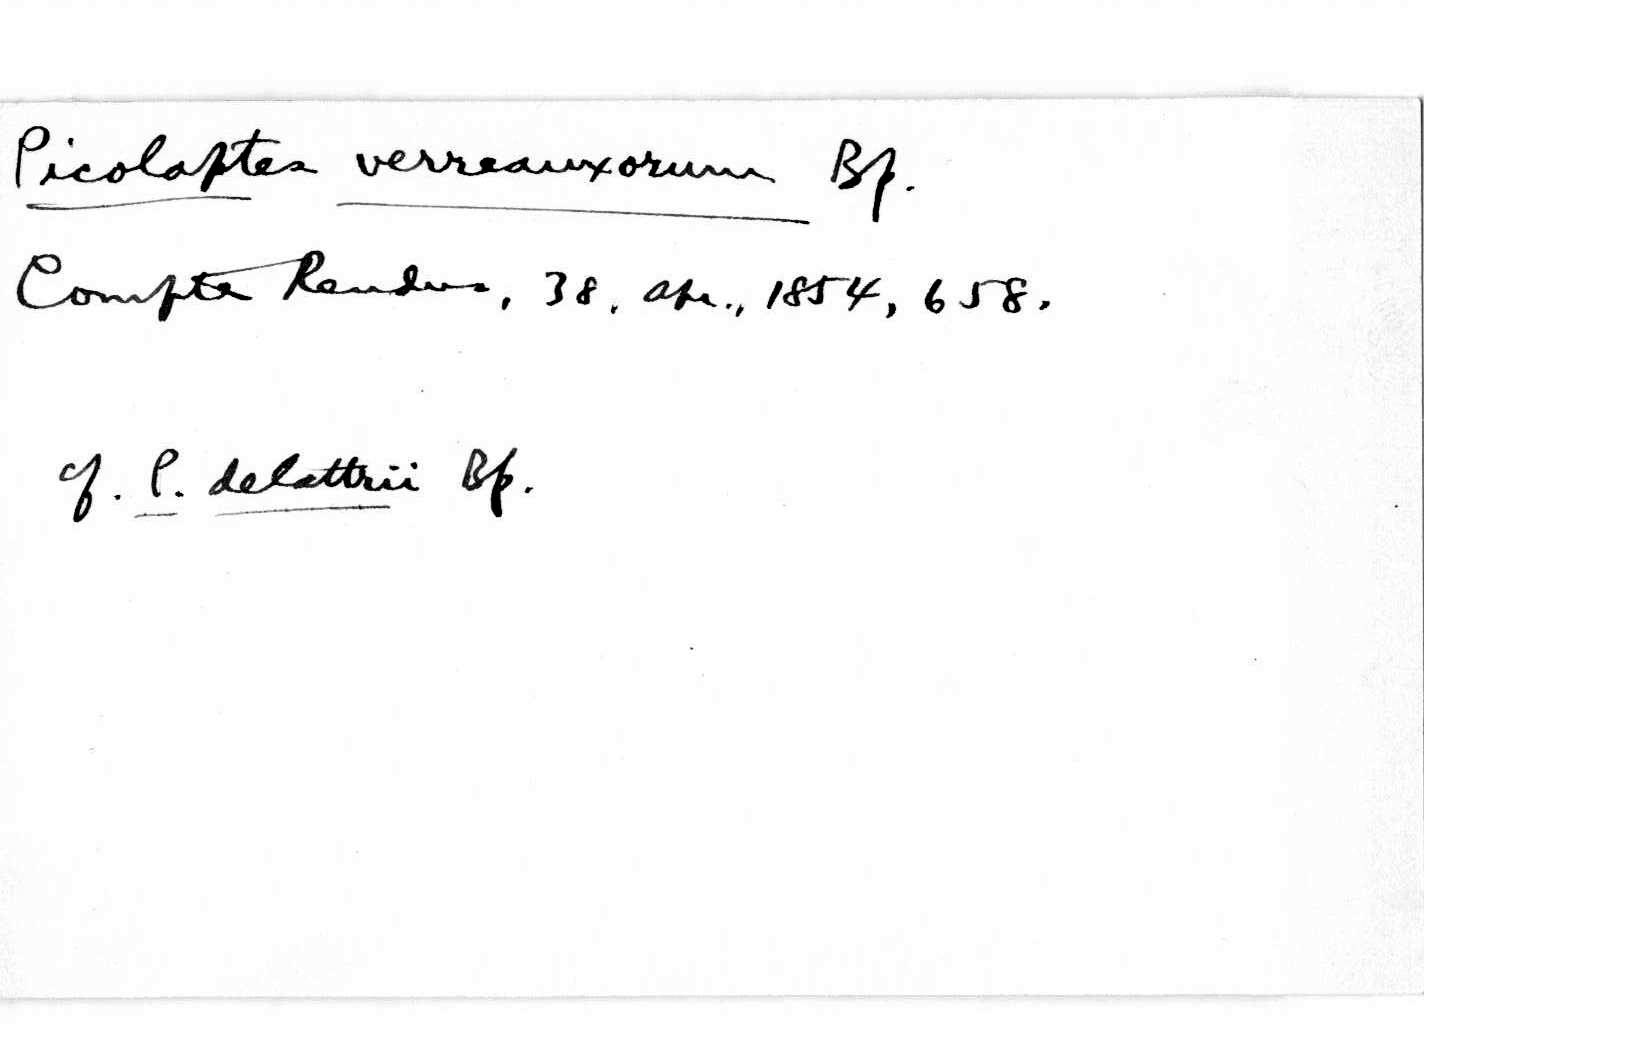 Picolaptes verreauxorum Bp.
Compte Rendus, 38, Apr., 1854, 658.
cf. P. delattrii Bp.